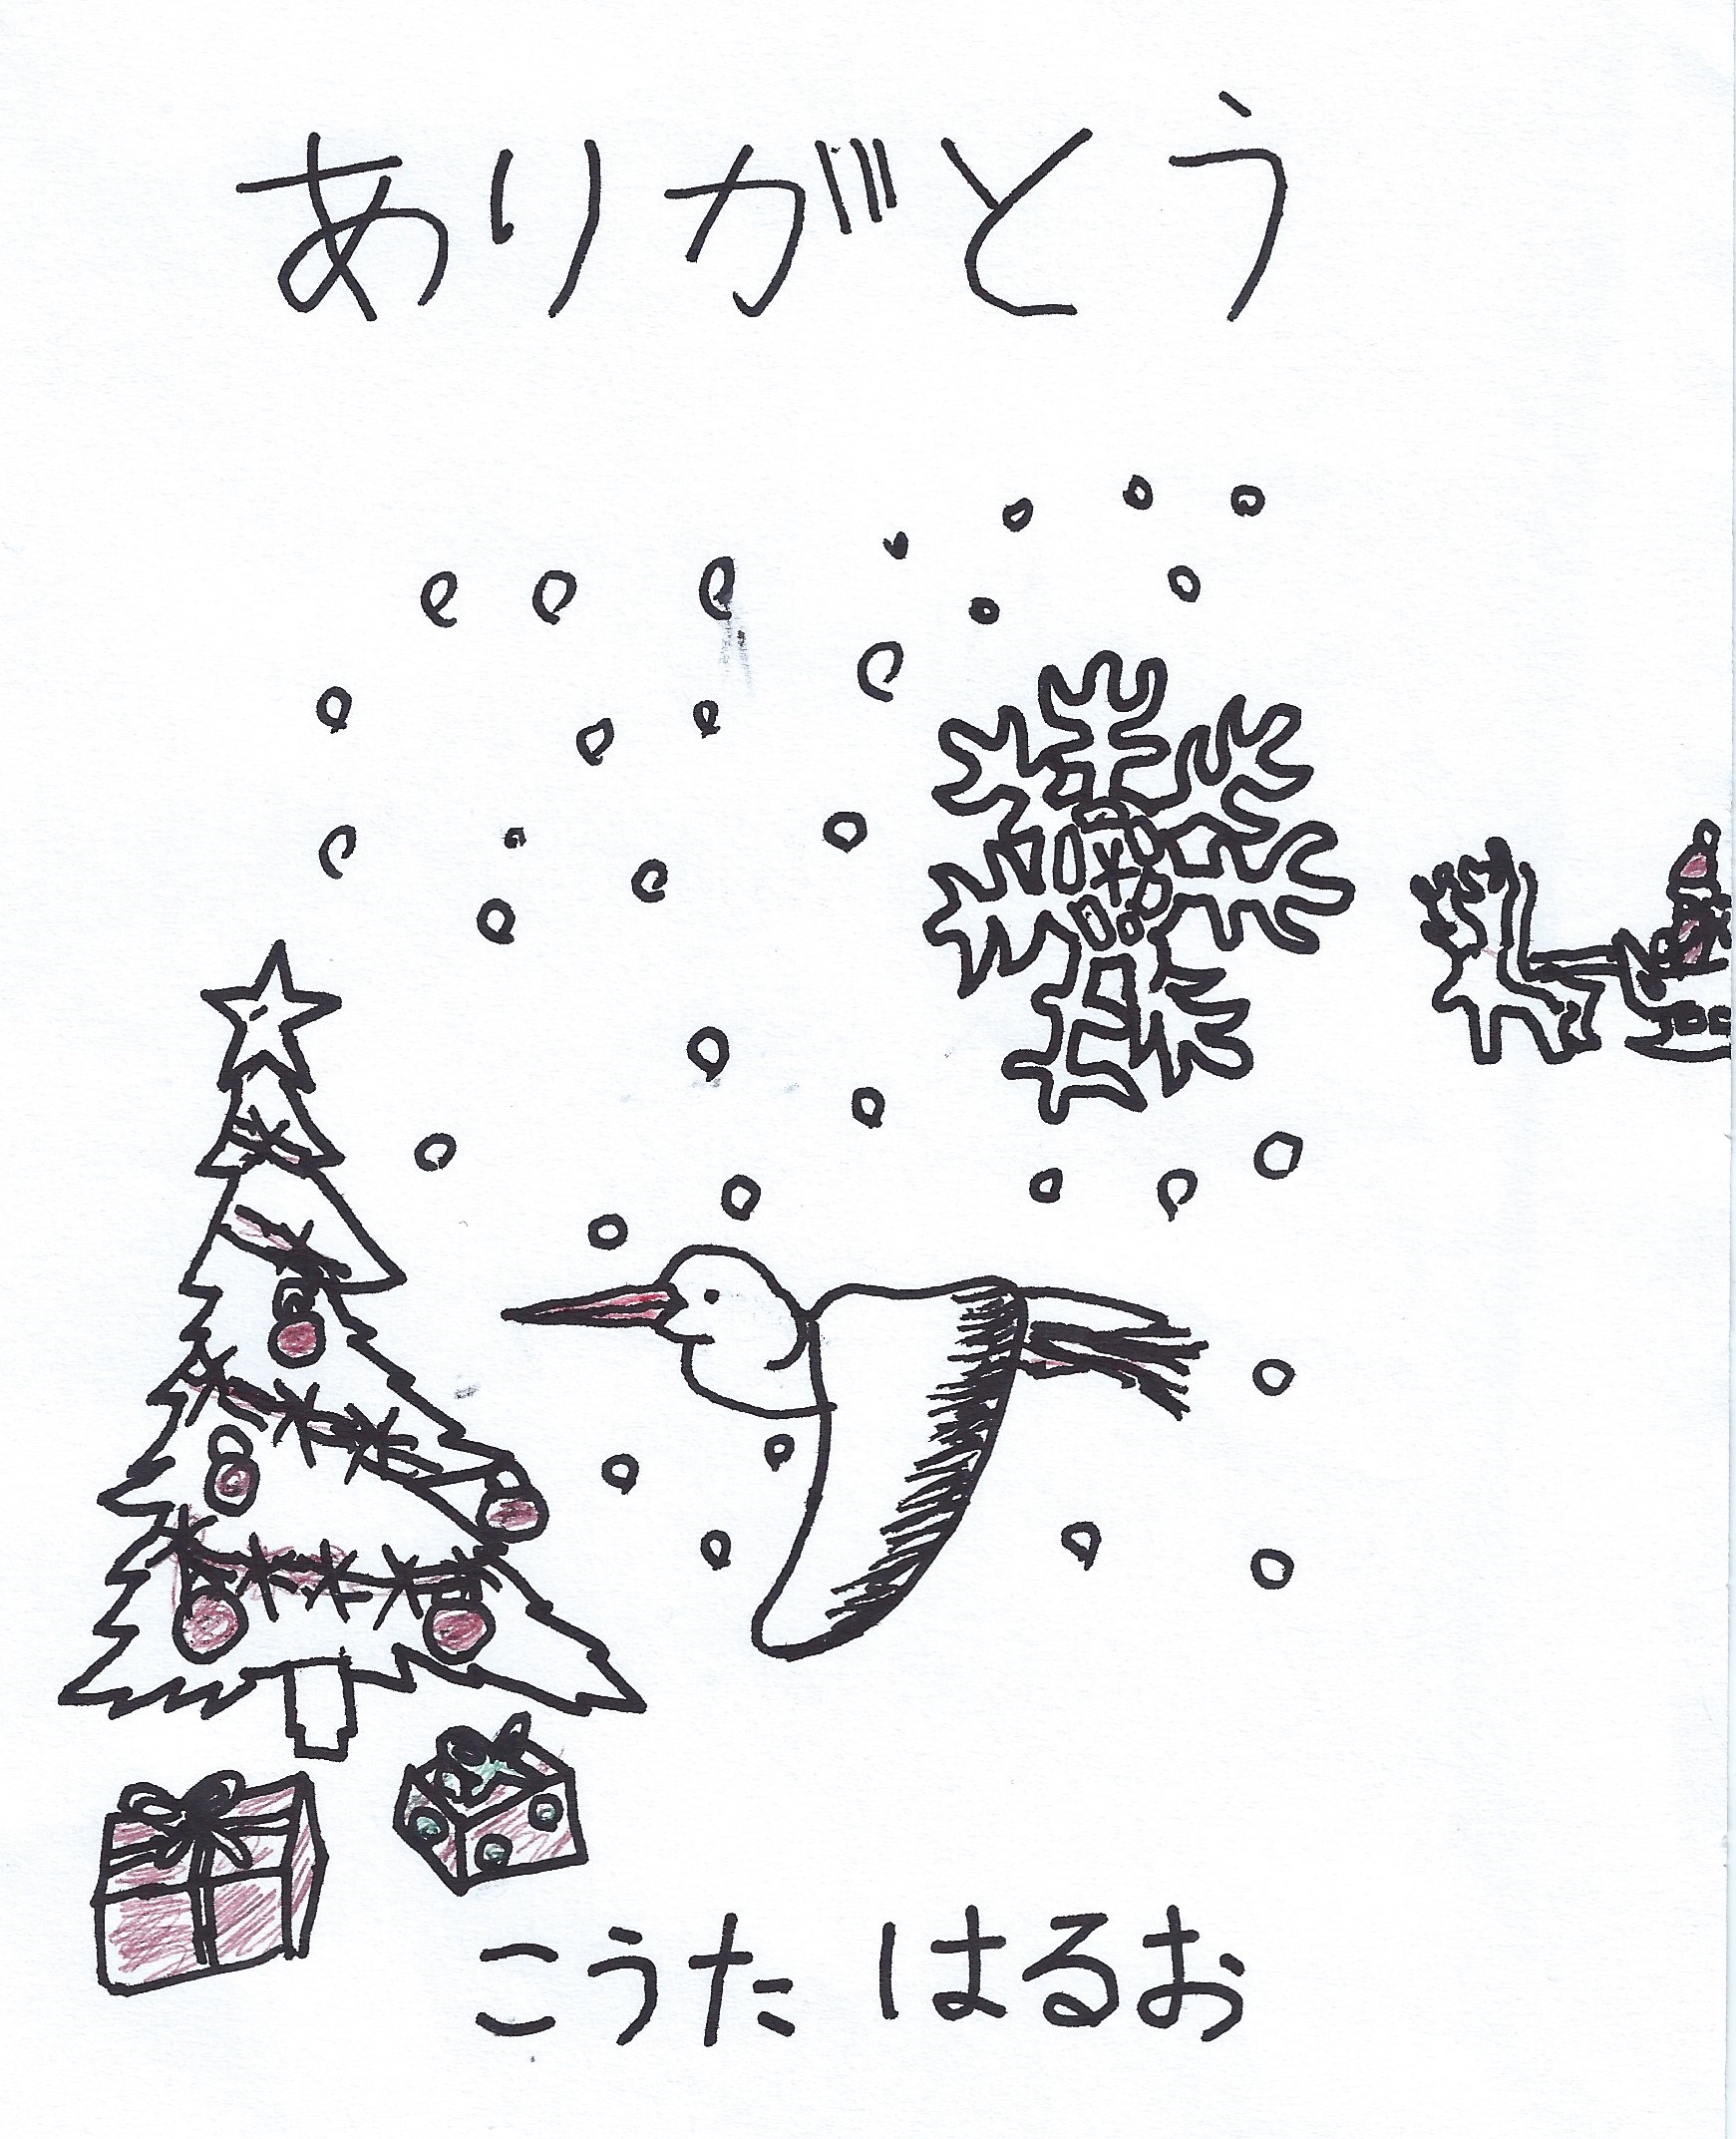 ありがとう
こうた はるお